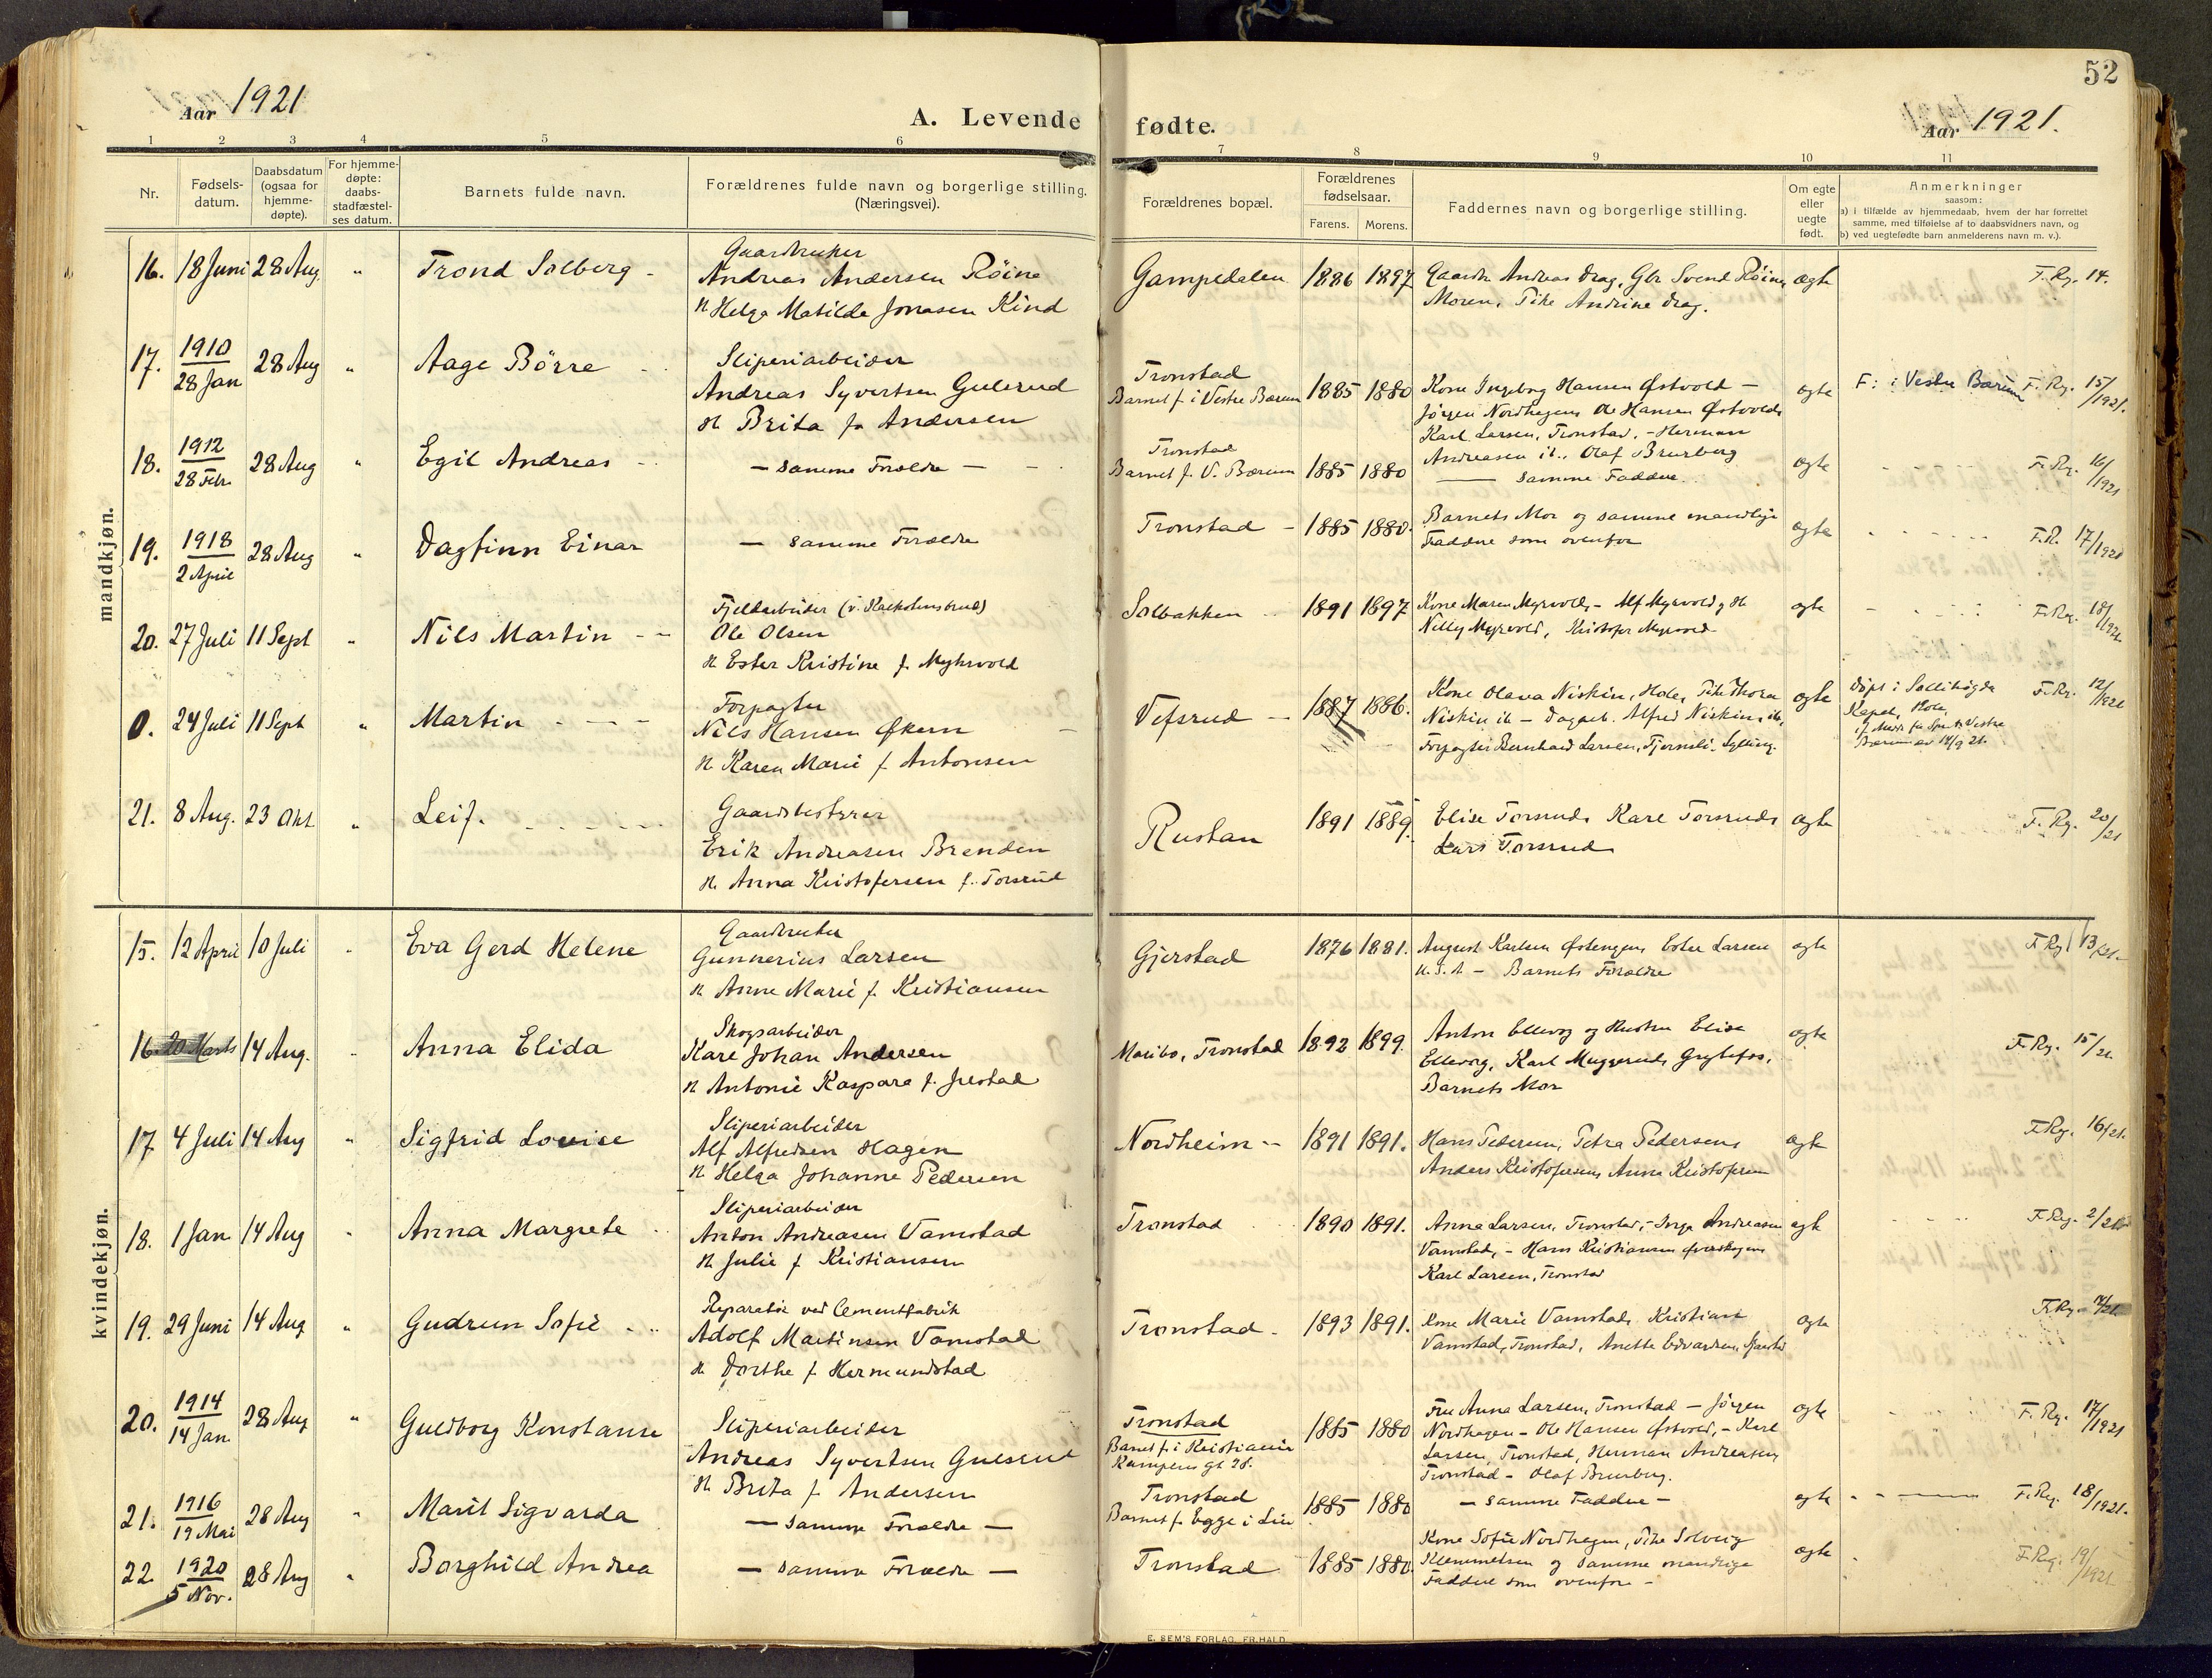 52
Aar 1921
A. Levende fødte.
Aar 1921.
1 2 3 4 5 6 7 8 9 10 11
Nr.
Fødsels-
datum.
Daabsdatum
(ogsaa for
hjemme-
døpte).
For hjemme-
døpte:
daabs-
stadfæstel-
ses datum.
Barnets fulde navn.
Forældrenes fulde navn og borgerlige stilling.
(Næringsvei).
Forældrenes bopæl.
Forældrenes
fødselsaar.
Farens. Morens.
Faddernes navn og borgerlige stilling.
Om egte
eller
uegte
født.
Anmerkninger
saasom:
a) i tilfælde av hjemmedaab, hvem der har forrettet
samme, med tilføielse af to daabsvidners navn, og
b) ved uegtefødte barn anmelderens navn m. v.).
mandkjøn.
16. 18 Juni 28 Aug. " Trond Solberg -
Gaardbruker
Andreas Andersen Röine
H Helga Matilde Jonasen Kind
Gampedalen 1886 1897
Gaardbr Andreas Drag, Gbr Svend Röine,
Moren, Pike Andrine Drag.
egte F. Rg. 14.
17. 1910
28 Jan 28 Aug " Aage Börre
Sliperiarbeider
Andreas Syvertsen Gulerud
H Brita f Andersen
Tronstad
Barnet f. i Vestre Bærum 1885 1880
Kone Ingeborg Hansen Østvold -
Jörgen Nordhagen, Ole Hansen Østvold,
Karl Larsen, Tronstad, - Herman
Andreasen ib., Olaf Brurberg
egte F: i Vestre Bærum F. Rg. 15/1921.
18. 1912
28 Febr. 28 Aug " Egil Andreas
- samme Forældre -
Tronstad
Barnet f. V. Bærum 1885 1880
samme Faddere.
egte F. Rg. 16/1921
19. 1918
2 April 28 Aug " Dagfinn Einar
- samme Forældre
Tronstad - 1885 1880.
Barnets Mor og samme mandlige
Faddere som ovenfor
egte F.R. 17/1921
20. 27 Juli 11 Sept " Nils Martin - -
Fjeldarbeider
Ole Olsen
H Ester Kristine f. Myhrvold
Solbakken 1891 1897
Kone Maren Myrvold, - Alf Myrvold og H
Nelly Myrvold, Kristofer Myrvold
egte F. Rg. 18/1921
0. 24 Juli 11 Sept " Martin - - -
Forpagter
Nils Hansen Økern
H Karen Marie f Antonsen
Vefsrud - 1887 1886.
Kone Olava Niskin, Hole, Pike Thora
Niskin ib - Dagarb. Alfred Niskin, ib,
Forpagter Bernhard Larsen, Tjernsli, Sylling.
egte Döpt i Sollihögda
Kapel, Hole,
Bærum av 14/9 21.
F. Rg. 12/1921
21. 8 Aug. 23 Okt " Leif.
Gaardsbestyrer
Erik Andreasen Brenden
H. Anna Kristofersen f. Torsrud
Rustan 1891 1889.
Elise Torsrud, Karl Torsrud,
Lars Torsrud
egte F. Rg. 20/21
kvindekjøn.
15. 12 April 10 Juli " Eva Gerd Helene
Gaardbruker
Gunnerius Larsen
H Anne Marie f. Kristiansen
Gjerstad 1876 1881.
August Karlsen Østengen, Ester Larsen
U.S.A - Barnets Forældre
egte F. Rg. 13/21.
16. 20 Marts 14 Aug. " Anna Elida
Skogsarbeider
Karl Johan Andersen
H Antonie Kaspara f.
Maribo, Tronstad 1892 1899.
Anton Ellevog og Hustru Elise
Ellevog, Karl Muggerud, Grytefos.
Barnets Mor
egte F. Rg. 15/21.
17 4 Juli 14 Aug " Sigfrid Louise
Sliperiarbeider
Alf Alfredsen Hagen
H Helga Johanne Pedersen
Nordheim - 1891 1891.
Hans Pedersen, Petra Pedersen,
Anders Kristofersen, Anna Kristofersen
egte F. Rg. 16/21.
18. 1 Jan 14 Aug " Anna Margrete
Sliperiarbeider
Anton Andreasen Vamstad
H Julie f Kristiansen
Tronstad 1890 1891.
Anna Larsen, Tronstad, - Inga Andreasen
Vamstad, - Hans Kristiansen
Karl Larsen, Tronstad
egte F. Rg. 2/21
19. 29 Juni 14 Aug " Gudrun Sofie
Reparatör ved Cementfabrik
Adolf Martinsen Vamstad
H Dorthe f Hermundstad
Tronstad - 1893 1891.
Kone Marie Vamstad, Kristian
Vamstad, Tronstad, Anette Edvardsen,
egte F. Rg.
20. 1914
14 Jan. 28 Aug " Guldborg Konstanse
Sliperiarbeider
Andreas Syvertsen Gulerud
H Brita f Andersen
Tronstad
Barnet f. i Kristiania
Kampens gt 28. 1885 1880
Fru Anna Larsen, Tronstad - Jörgen
Nordhagen - Ole Hansen Østvold, - Karl
Larsen, Tronstad, Herman Andreasen,
Tronstad - Olaf Brurberg.
egte F. Rg. 17/1921
21. 1916
19 Mai 28 Aug " Marit Sigvarda
- samme Forældre -
Tronstad
Barnet f. Egge i Lier 1885 1880
- samme Faddere -
egte F. Rg. 18/1921.
22. 1920
5 Nov. 28 Aug " Borghild Andrea
- samme Forældre -
Tronstad 1885 1880.
Kone Sofie Nordhagen, Pike Solveig
Klemmetsen og samme mandlige
Faddere som ovenfor -
egte F. Rg. 19/1921
E. SEM'S FORLAG, FR.HALD